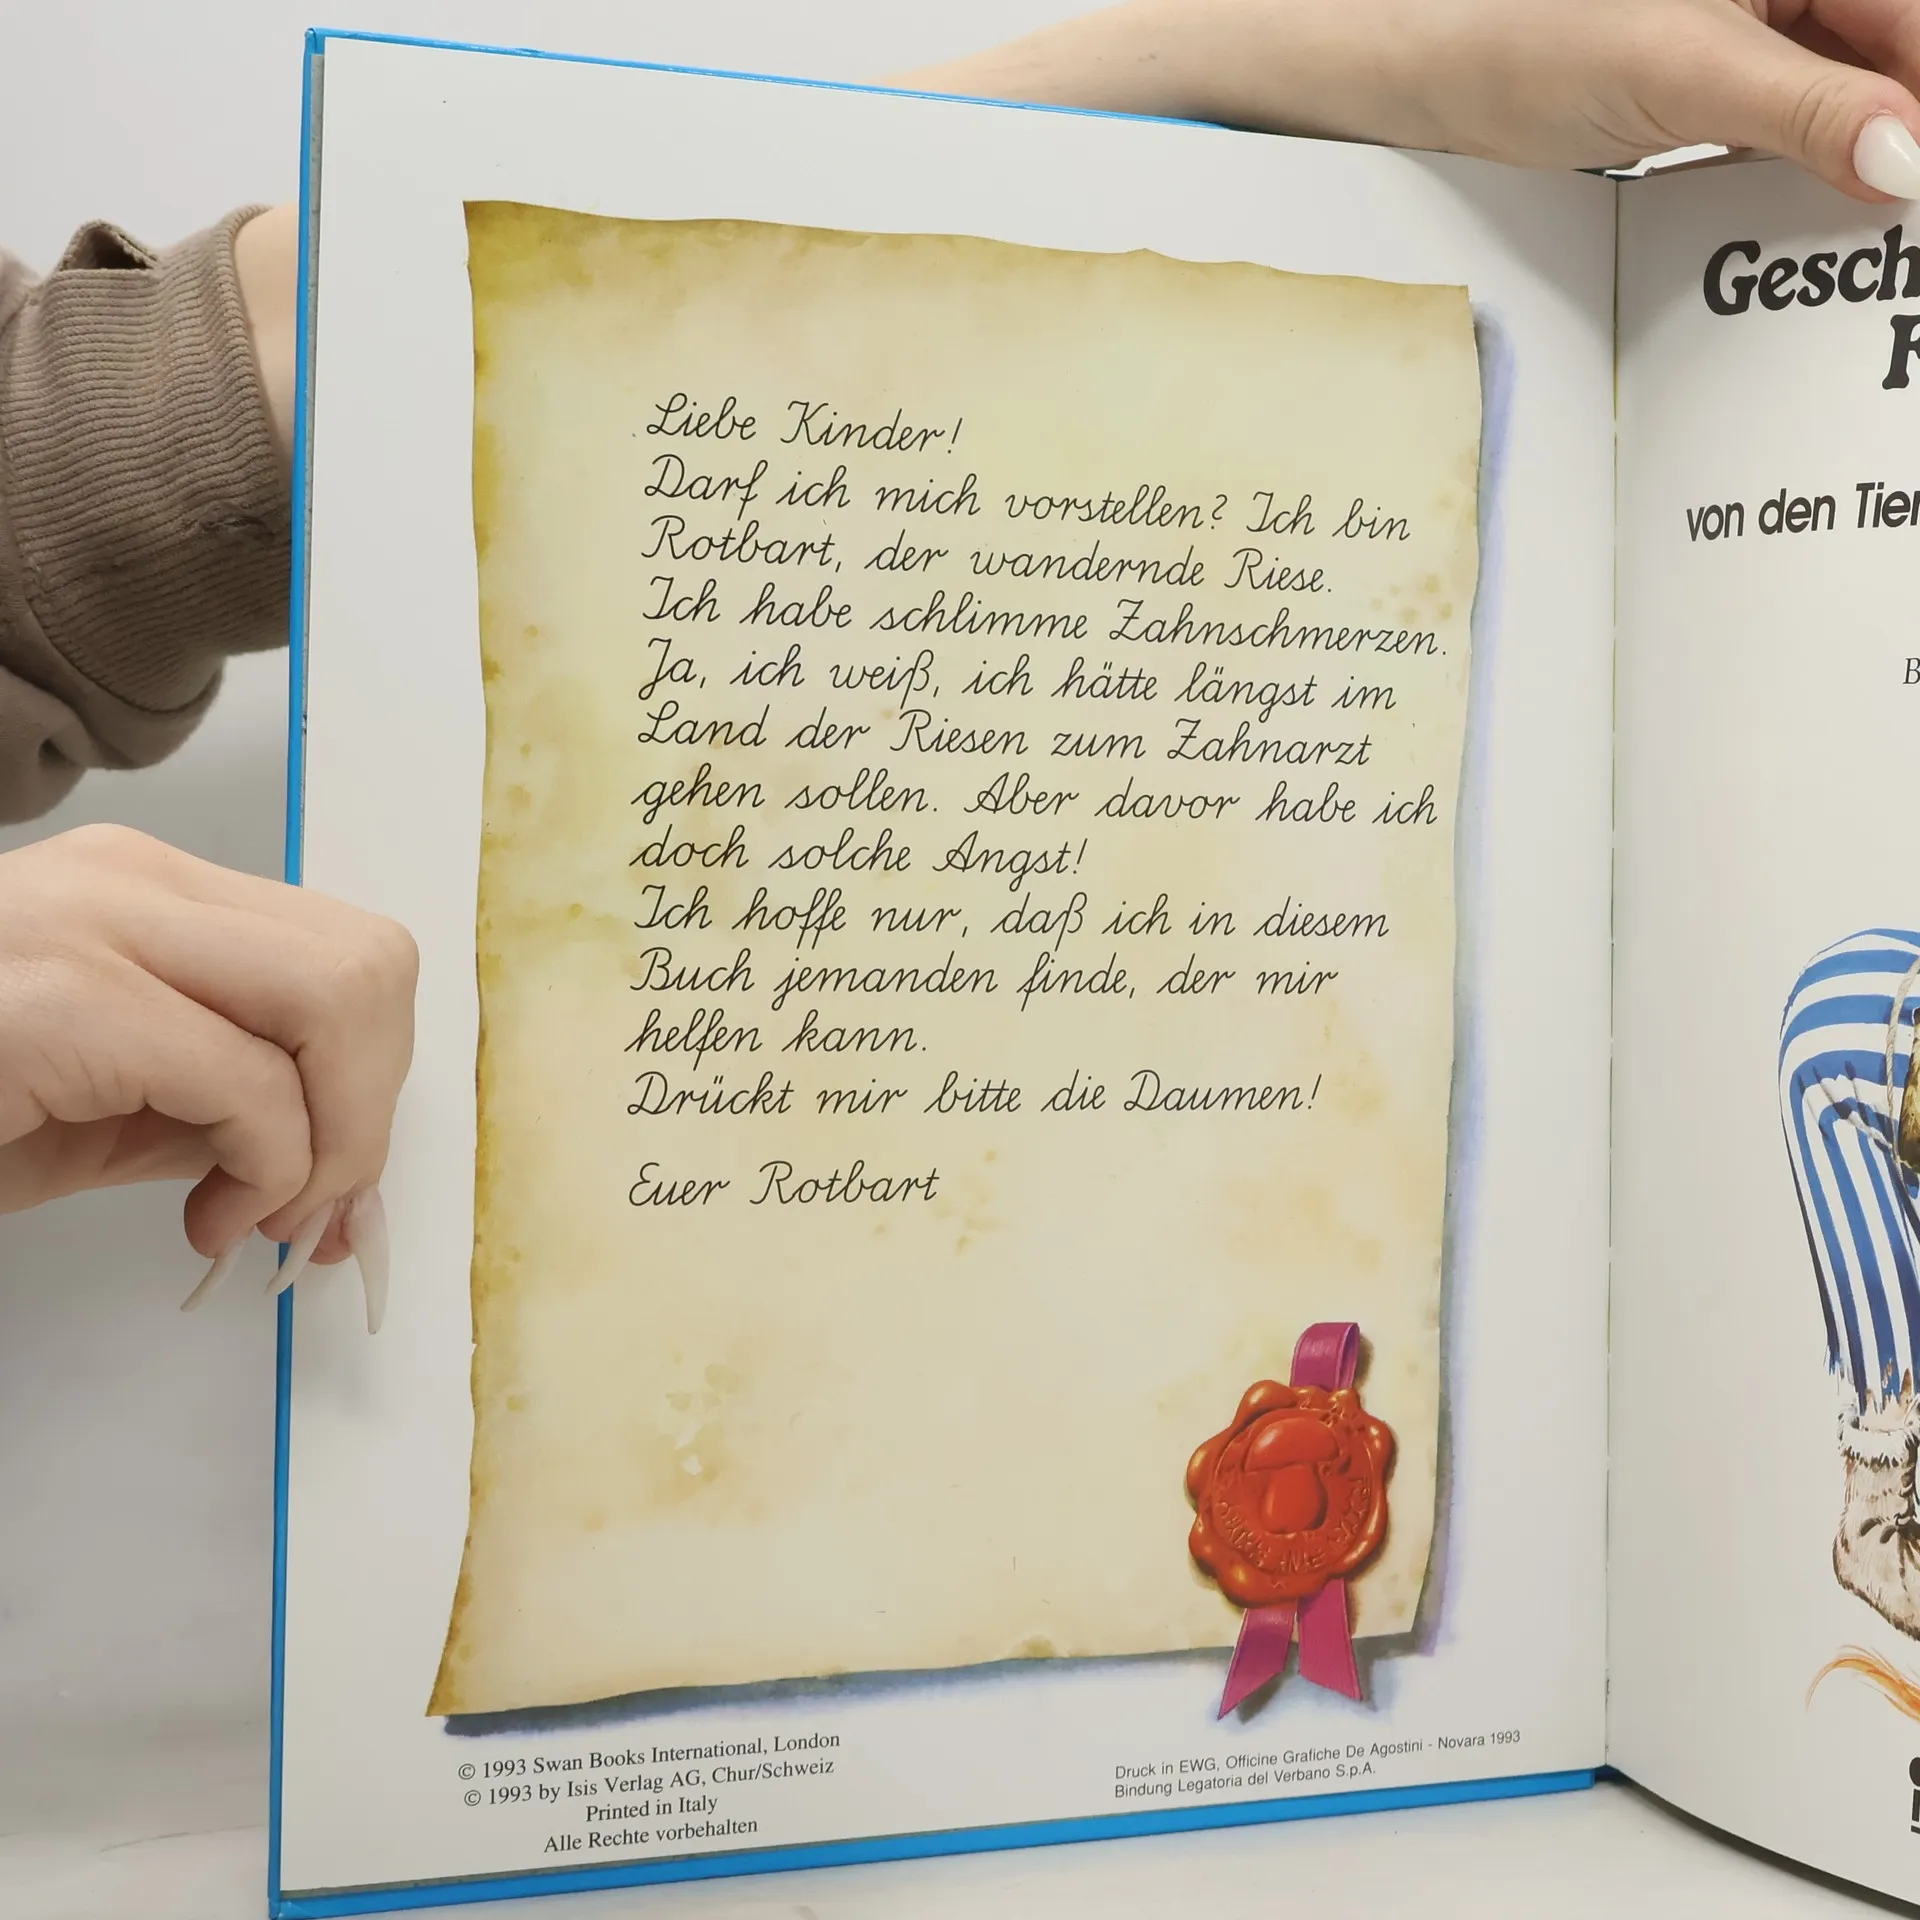 Liebe Kinder!
Darf ich mich vorstellen? Ich bin
Rotbart, der wandernde Riese.
Ich habe schlimme Zahnschmerzen.
Ja, ich weiß, ich hätte längst im
Land der Riesen zum Zahnarzt
gehen sollen. Aber davor habe ich
doch solche Angst!
Ich hoffe nur, daß ich in diesem
Buch jemanden finde, der mir
helfen kann.
Drückt mir bitte die Daumen!
Euer Rotbart
© 1993 Swan Books International, London
© 1993 by Isis Verlag AG, Chur/Schweiz
Printed in Italy
Alle Rechte vorbehalten
Druck in EWG, Officine Grafiche De Agostini - Novara 1993
Bindung Legatoria del Verbano S.p.A.
Gesch
von den Tier